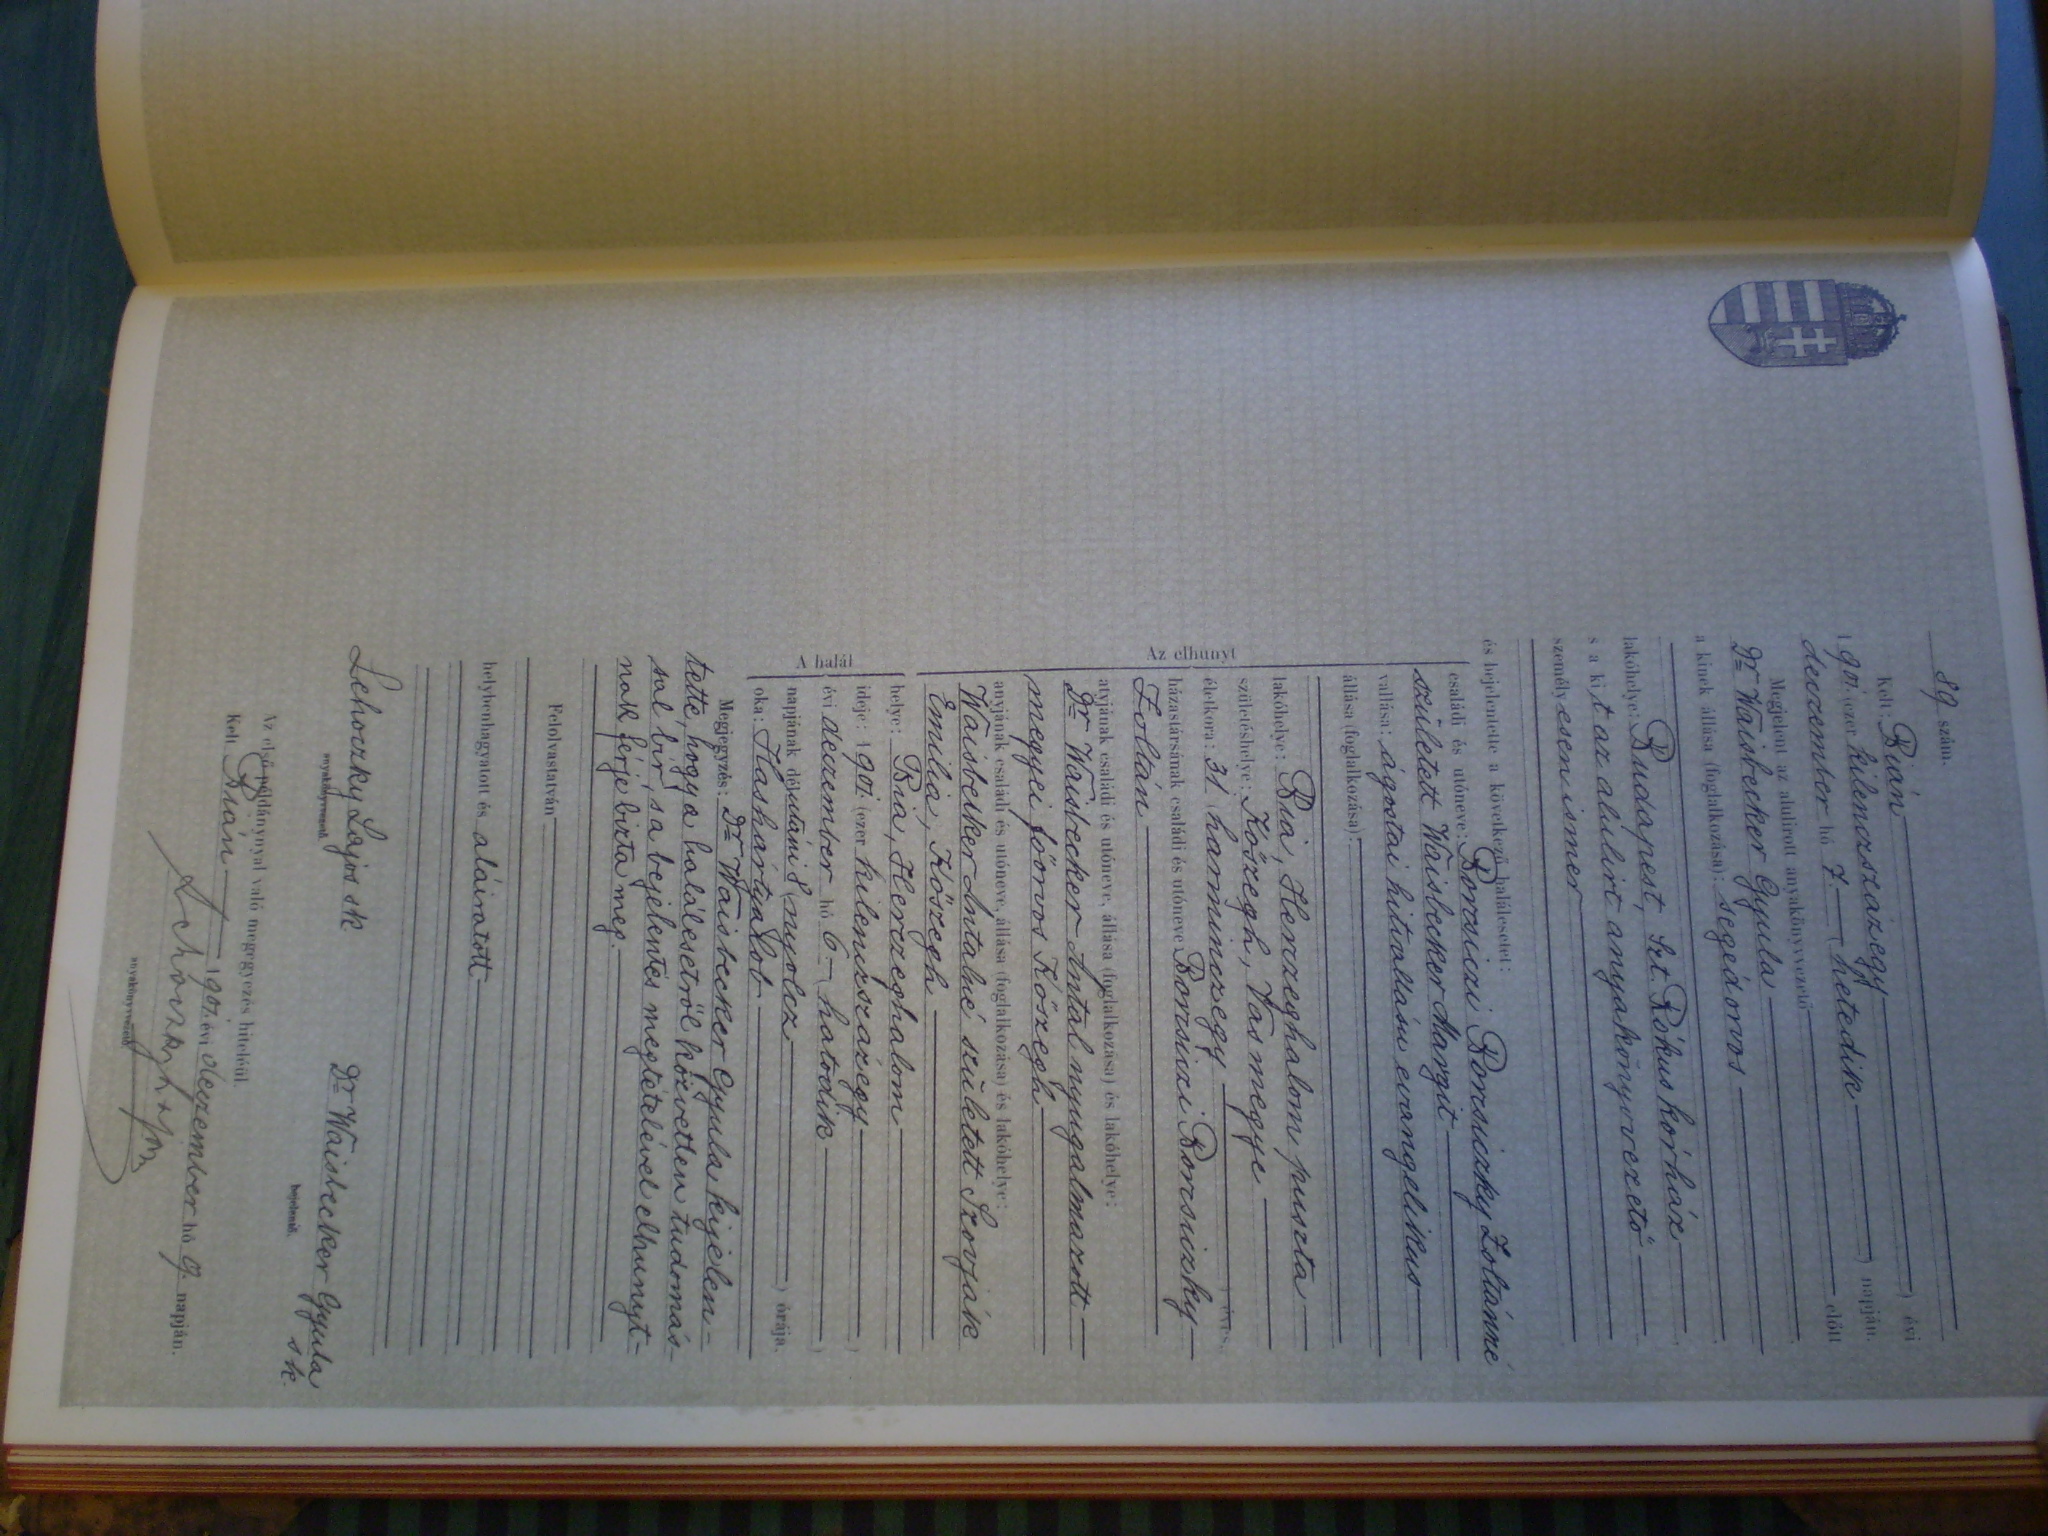 89 szám.
Kelt: Bián ) évi
1901. (ezer kilenczszázegy
deczember hó 7. ( hetedik ) napján.
Megjelent az alulirott anyakönyvvezető előtt
Dr Waisbecker Gyula
a kinek állása (foglalkozása): segédorvos
lakóhelye: Budapest, Szt. Rókus kórház
s a kit az alulirt anyakönyvvezető
személyesen ismer
és bejelentette a következő halálesetet:
Az elhunyt
családi és utóneve: Borsiczi Borsiczky Zoltánné
született Waisbecker Margit
vallása: ágostai hitvallású evangelikus
állása (foglalkozása):
lakóhelye: Bia, Herczeghalom puszta
születéshelye: Kőszegh, Vasmegye
életkora: 31 (harminczegy ) éves
házastársának családi és utóneve: Borsiczi Borsiczky
Zoltán
atyjának családi és utóneve, állása (foglalkozása) és lakóhelye:
Dr Waisbecker Antal nyugalmazott
megyei főorvos Kőszegh
anyjának családi és utóneve, állása (foglalkozása) és lakóhelye:
Waisbecker Antalné született Szovják
Emilia, Kőszegh
A halál
helye: Bia, Herczeghalom
ideje: 1901. (ezer kilenczszázegy )
évi deczember hó 6 ( hatodik )
napjának délutáni 8 (nyolcz ) órája.
oka: Haskártyalob
Megjegyzés: Dr Waisbecker Gyula kijelen-
tette, hogy a halálesetről közvetlen tudomás-
sal bír, s a bejelentés megtételével elhunyt-
nak férje bizta meg.
Felolvastatván
helybenhagyatott és aláiratott
Lehoczky Lajos sk Dr Waisbecker Gyula
sk.
anyakönyvvezető. bejelentő.
Az első példánynyal való megegyezés hiteléül.
Kelt Bián 1901. évi deczember hó 9. napján.
anyakönyvvezető.